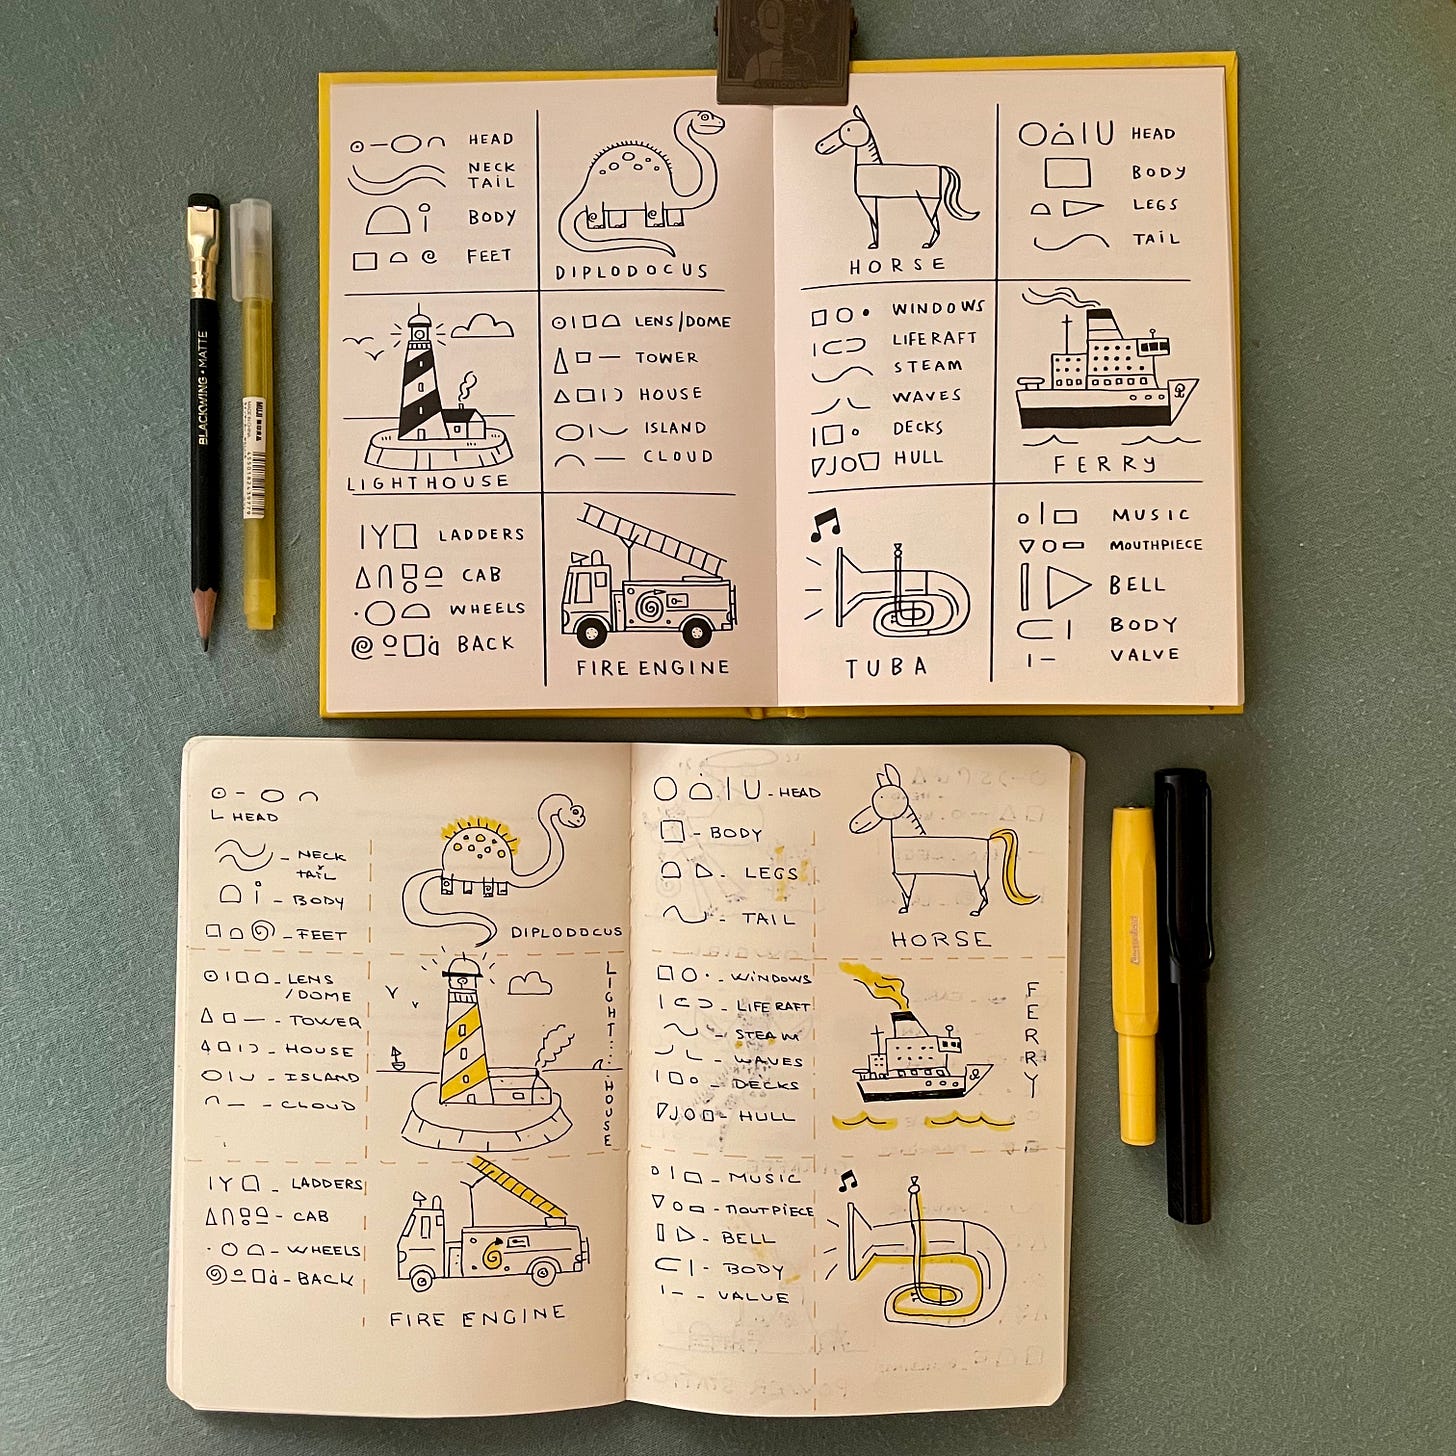 HEAD
NECK
TAIL
BODY
FEET
DIPLODOCUS
HORSE
HEAD
BODY
LEGS
TAIL
LIGHTHOUSE
LENS/DOME
TOWER
HOUSE
ISLAND
CLOUD
WINDOWS
LIFERAFT
STEAM
WAVES
DECKS
HULL
FERRY
LADDERS
CAB
WHEELS
BACK
FIRE ENGINE
TUBA
MUSIC
MOUTHPIECE
BELL
BODY
VALVE
BLACKWING · MATTE
HEAD
- NECK
TAIL
- BODY
- FEET
DIPLODOCUS
- HEAD
- BODY
- LEGS
- TAIL
HORSE
- LENS
/DOME
- TOWER
- HOUSE
- ISLAND
- CLOUD
LIGHT
HOUSE
- WINDOWS
- LIFERAFT
- STEAM
- WAVES
- DECKS
- HULL
FERRY
- LADDERS
- CAB
- WHEELS
- BACK
FIRE ENGINE
- MUSIC
- MOUTPIECE
- BELL
- BODY
- VALVE